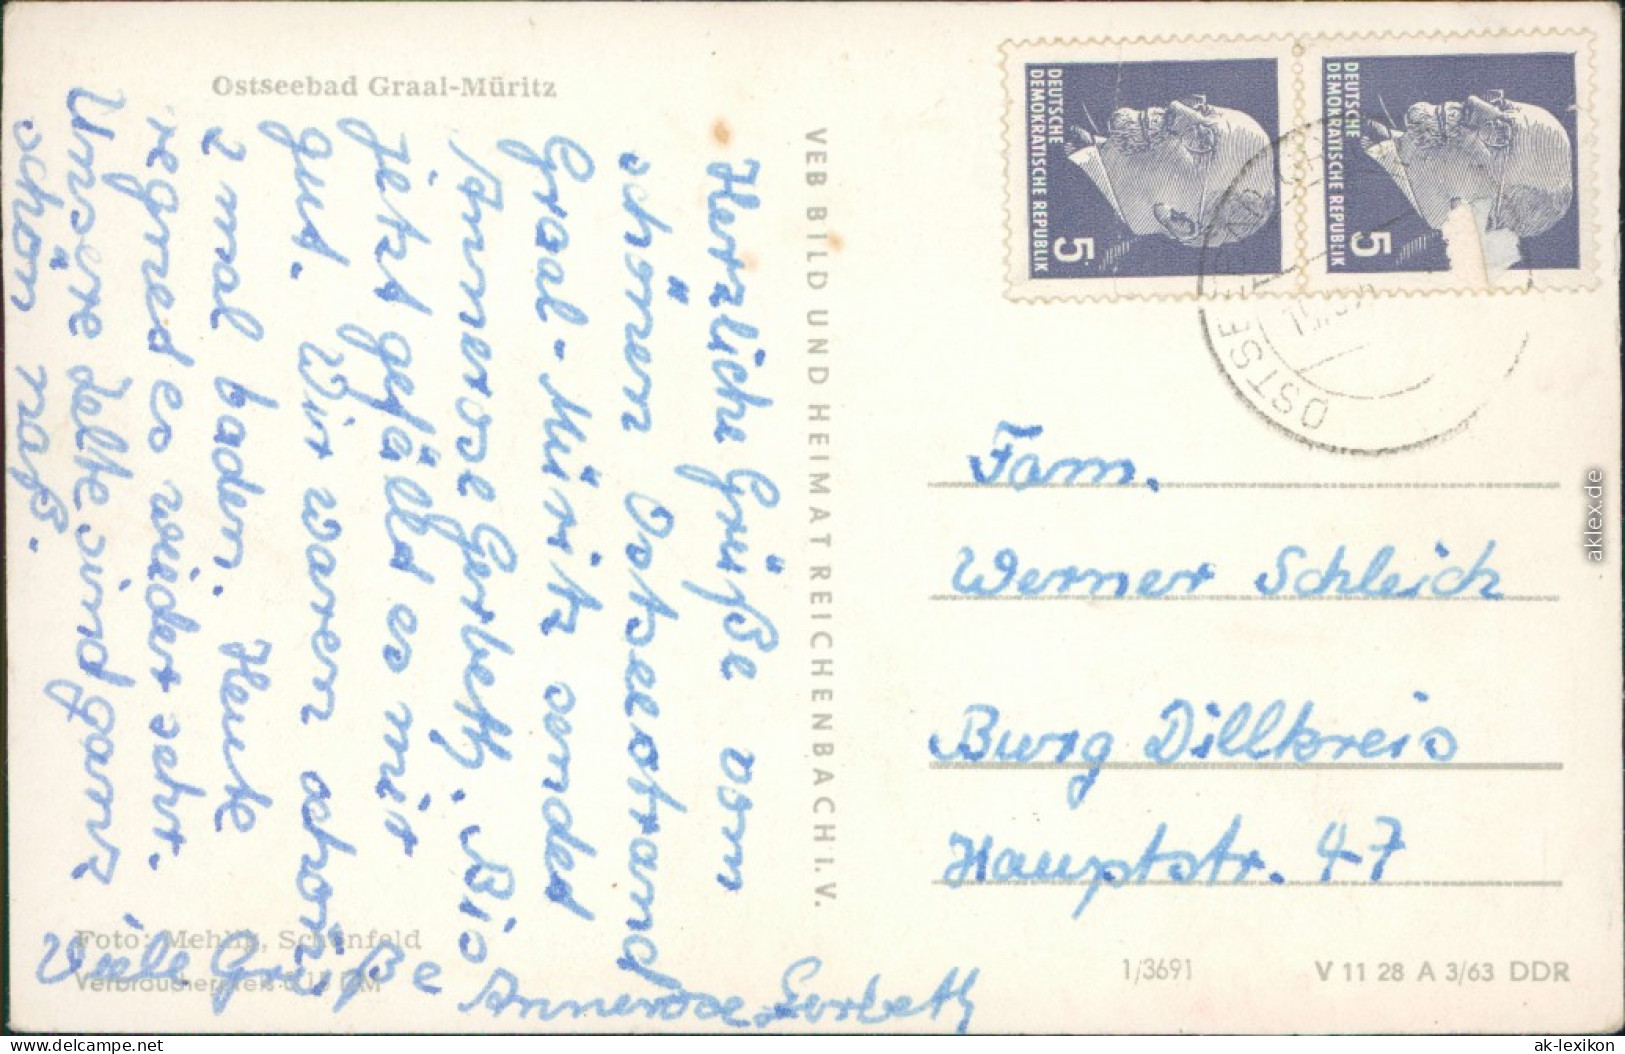 Ostseebad Graal-Müritz
Herzliche Grüße vom
schönen Ostseestrand
Graal-Müritz sendet
Annerose Gerbeth. Bis
jetzt gefällt es mir
gut. Wir waren schon
2 mal baden. Heute
regnet es wieder sehr.
Unsere Zelte sind ganz
schön naß.
Viele Grüße
Annerose Gerbeth
Foto: Mehlig, Schönfeld
Verbraucherpreis 0,15 DM
VEB BILD UND HEIMAT REICHENBACH I. V.
DEUTSCHE
DEMOKRATISCHE REPUBLIK
5
DEUTSCHE
DEMOKRATISCHE REPUBLIK
5
OSTSEE
Fam.
Werner Schleich
Burg Dillkreis
Hauptstr. 47
1/3691
V 11 28 A 3/63 DDR
aklex.de
oldthing.com
ak-lexikon